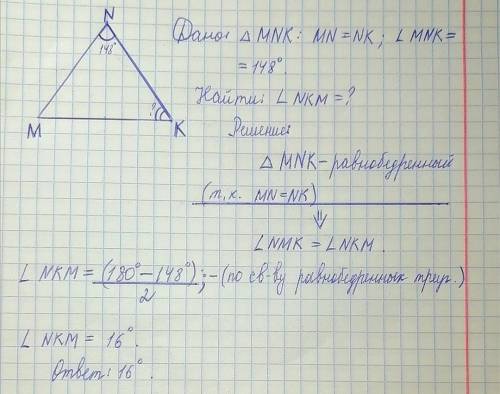 N
148°
?
M
K
Дано: △ MNK: MN = NK; ∠ MNK =
= 148°.
Найти: ∠ NKM = ?
Решение:
△ MNK – равнобедренный
(т.к. MN = NK)
⇓
∠ NMK = ∠ NKM.
∠ NKM = (180° – 148°) ; – (по св-ву равнобедренных треуг.)
2
∠ NKM = 16°.
Ответ: 16°.